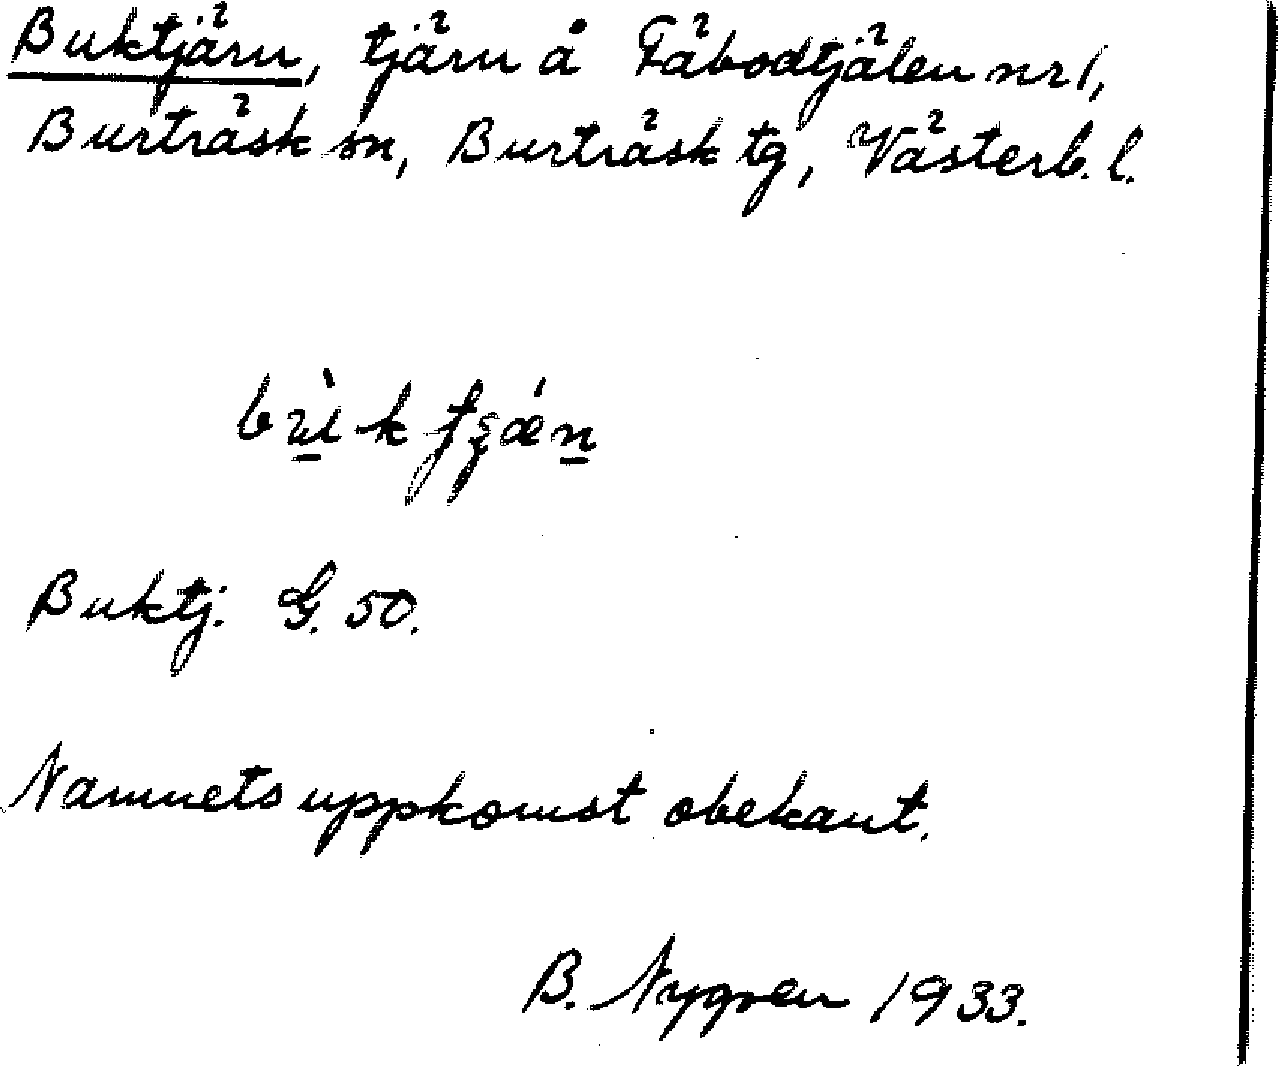 Buktjärn, tjärn å Fäbodtjälen nr 1,
Burträsk sn, Burträsk tg, Västerb. l.
Buktj. G. 50.
Namnets uppkomst obekant.
B. Nygren 1933.